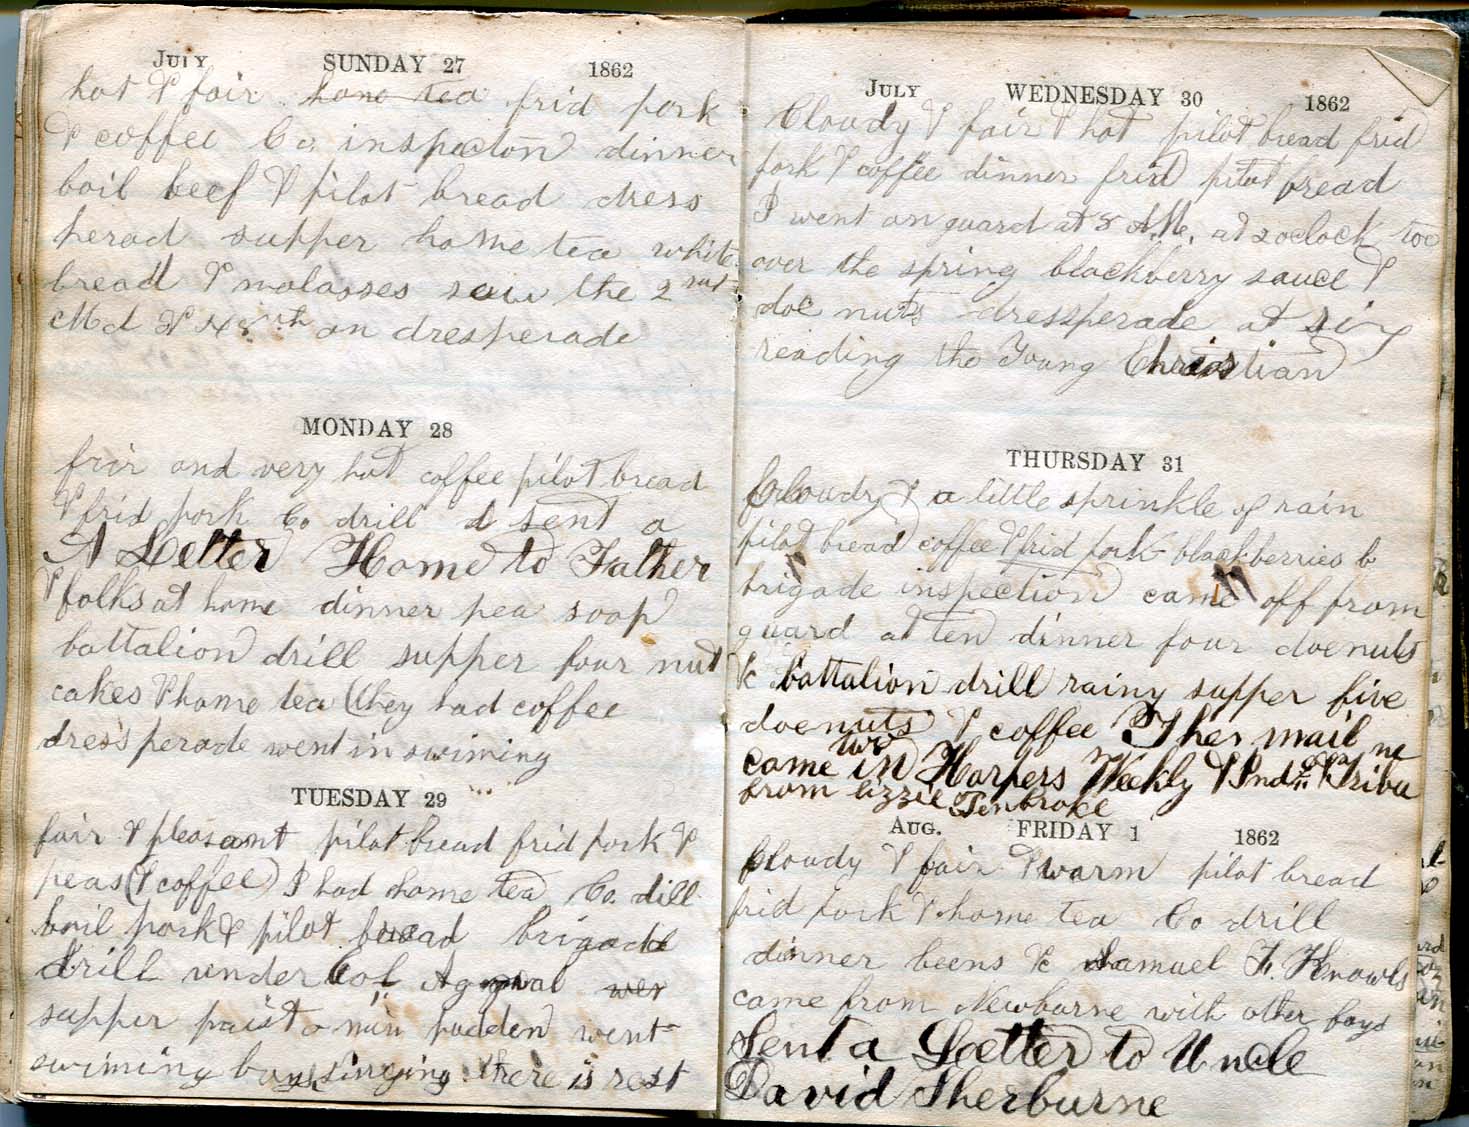 July SUNDAY 27 1862
hot & fair home tea frid pork
& coffee Co. inspecton dinner
boil beef & pilot bread dress
perad supper home tea white
bread & molasses saw the 2
Md & 48th on dresperade
MONDAY 28
fair and very hot coffee pilot bread
& frid pork Co drill sent a
A Letter Home to Father
& folks at home dinner pea soop
battalion drill supper four nut
cakes & home tea (they had coffee
dressperade went in swiming
TUESDAY 29
fair & pleasant pilot bread frid pork &
peas (& coffee) I had home tea Co. dill
boil pork & pilot bread brigade
drill under Col.
supper pudden went
swiming boys singing there is rest
July WEDNESDAY 30 1862
Cloudy & fair & hot pilot bread frid
pork & coffee dinner frid pilot bread
I went on guard at 8 A.M. at 2 oclock too
over the spring blackberry sauce &
doe nuts dressperade at six
reading the Young Christian
THURSDAY 31
Cloudy & a little sprinkle of rain
pilot bread coffee & frid pork blackberries
brigade inspection came off from
guard at ten dinner four doenuts
&c battalion drill rainy supper five
doenuts & coffee Ther mail
came in two Harpers Weekly & Ind. & Tribu ne
from Lizzie Tenbroke
Aug. FRIDAY 1 1862
Cloudy & fair & warm pilot bread
frid pork & home tea Co drill
dinner beens &c Samuel F. Knowls
came from Newburne with other boys
Sent a Letter to Uncle
David Sherburne